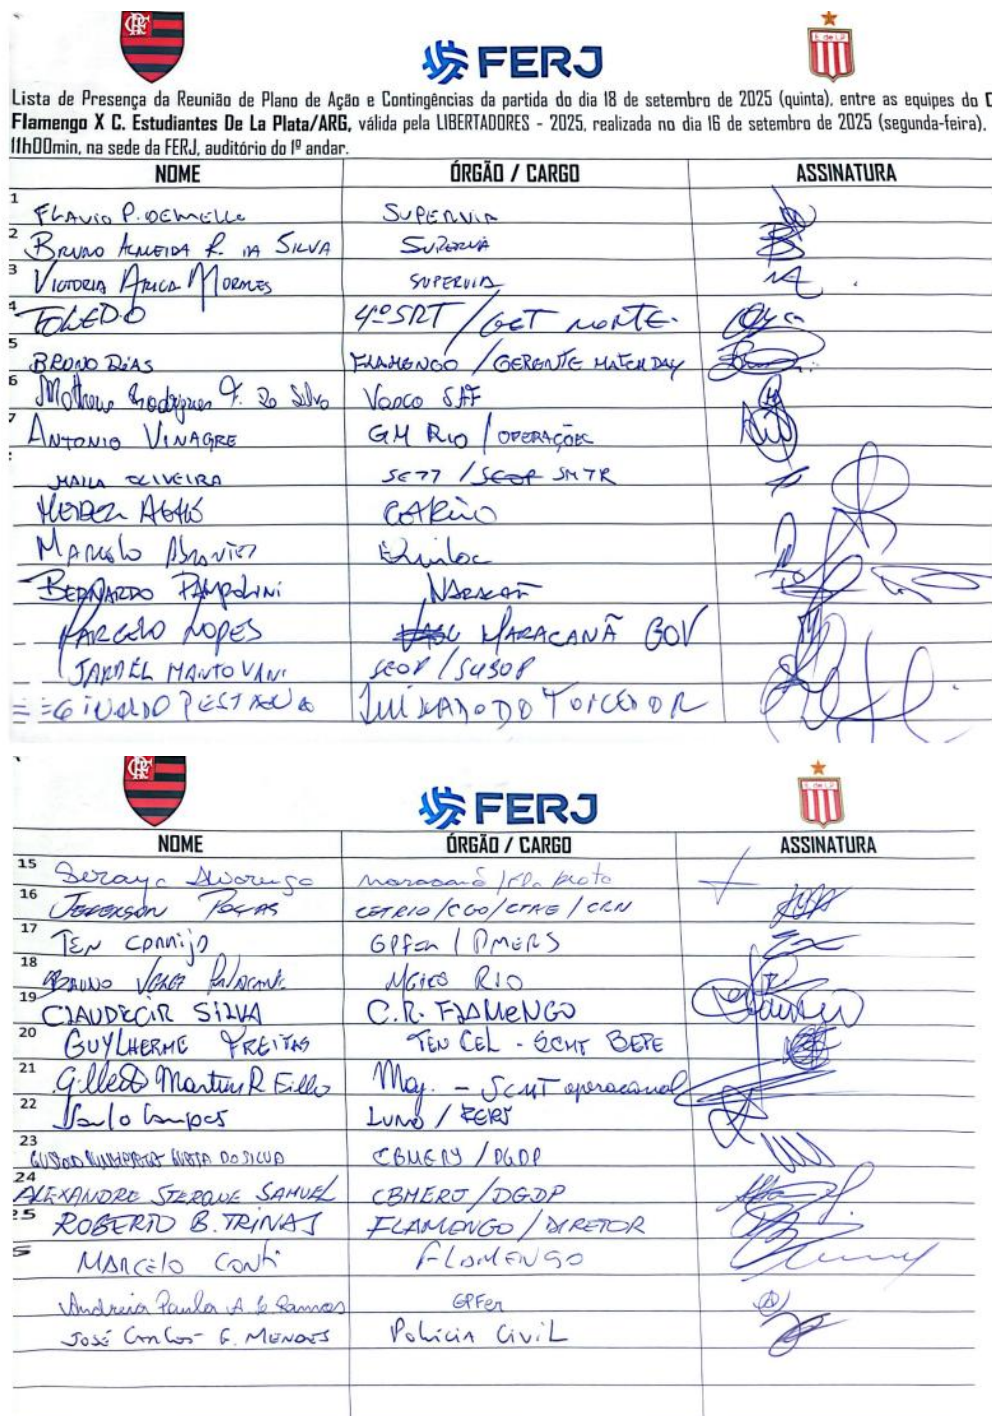 FERJ
E de L.P.
Lista de Presença da Reunião de Plano de Ação e Contingências da partida do dia 18 de setembro de 2025 (quinta), entre as equipes do
Flamengo X C. Estudiantes De La Plata/ARG, válida pela LIBERTADORES - 2025, realizada no dia 16 de setembro de 2025 (segunda-feira),
11h00min, na sede da FERJ, auditório do 1º andar.
NOME ÓRGÃO / CARGO ASSINATURA
1 FLAVIO P. DE MELLO SUPERVIA
2 BRUNO ALMEIDA R. DA SILVA SUPERVIA
3 VICTORIA MORAES SUPERVIA
4 TOLEDO 4º SRT / GET NORTE
5 BRUNO DIAS FLAMENGO / GERENTE MATCH DAY
6 Matheus Rodrigues F. da Silva Vasco SAF
7 ANTONIO VINAGRE GM RIO / OPERAÇÕES
MAILA OLIVEIRA SETT / SEOP SMTR
MARCELO
BERNARDO PAMPOLINI MARACANÃ
MARCELO LOPES MARACANÃ GOV
MANTOVANI SEOP / SUBOP
PESTANA JUIZADO DO TORCEDOR
FERJ
E de L.P.
NOME ÓRGÃO / CARGO ASSINATURA
15 Maracanã
16 JEFERSON CETRIO / CGO / CTAE / CRN
17 TEN GPFer / PMERJ
18 BRUNO RIO
19 CLAUDECIR SILVA C.R. FLAMENGO
20 GUYLHERME FREITAS TEN CEL - SCMT BEPE
21 Gilberto Martins R Filho Maj. - SCMT operacional
22 Paulo Campos FERJ
23 CBMERJ / DGDP
24 ALEXANDRE STERQUE SAMUEL CBMERJ / DGDP
25 ROBERTO B. TRINAS FLAMENGO / DIRETOR
MARCELO Conti FLAMENGO
Andreia Paula A. de Ramos GPFer
JOSÉ Carlos G. MENDES Polícia Civil